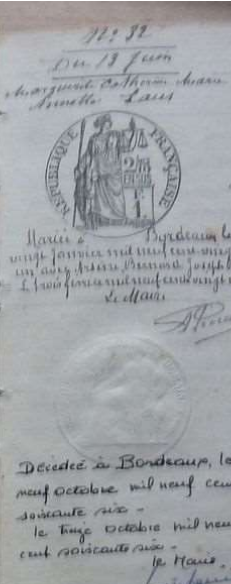 N° 32
Du 13 Juin
Marguerite Catherine Marie
Laus
RÉPUBLIQUE FRANÇAISE
Mariée à Bordeaux le
vingt Janvier mil neuf cent vingt
un avec
Le trois février mil neuf cent vingt
Le Maire
Décédée à Bordeaux, le
neuf octobre mil neuf cent
soixante six -
le treize octobre mil neuf
cent soixante six -
le Maire